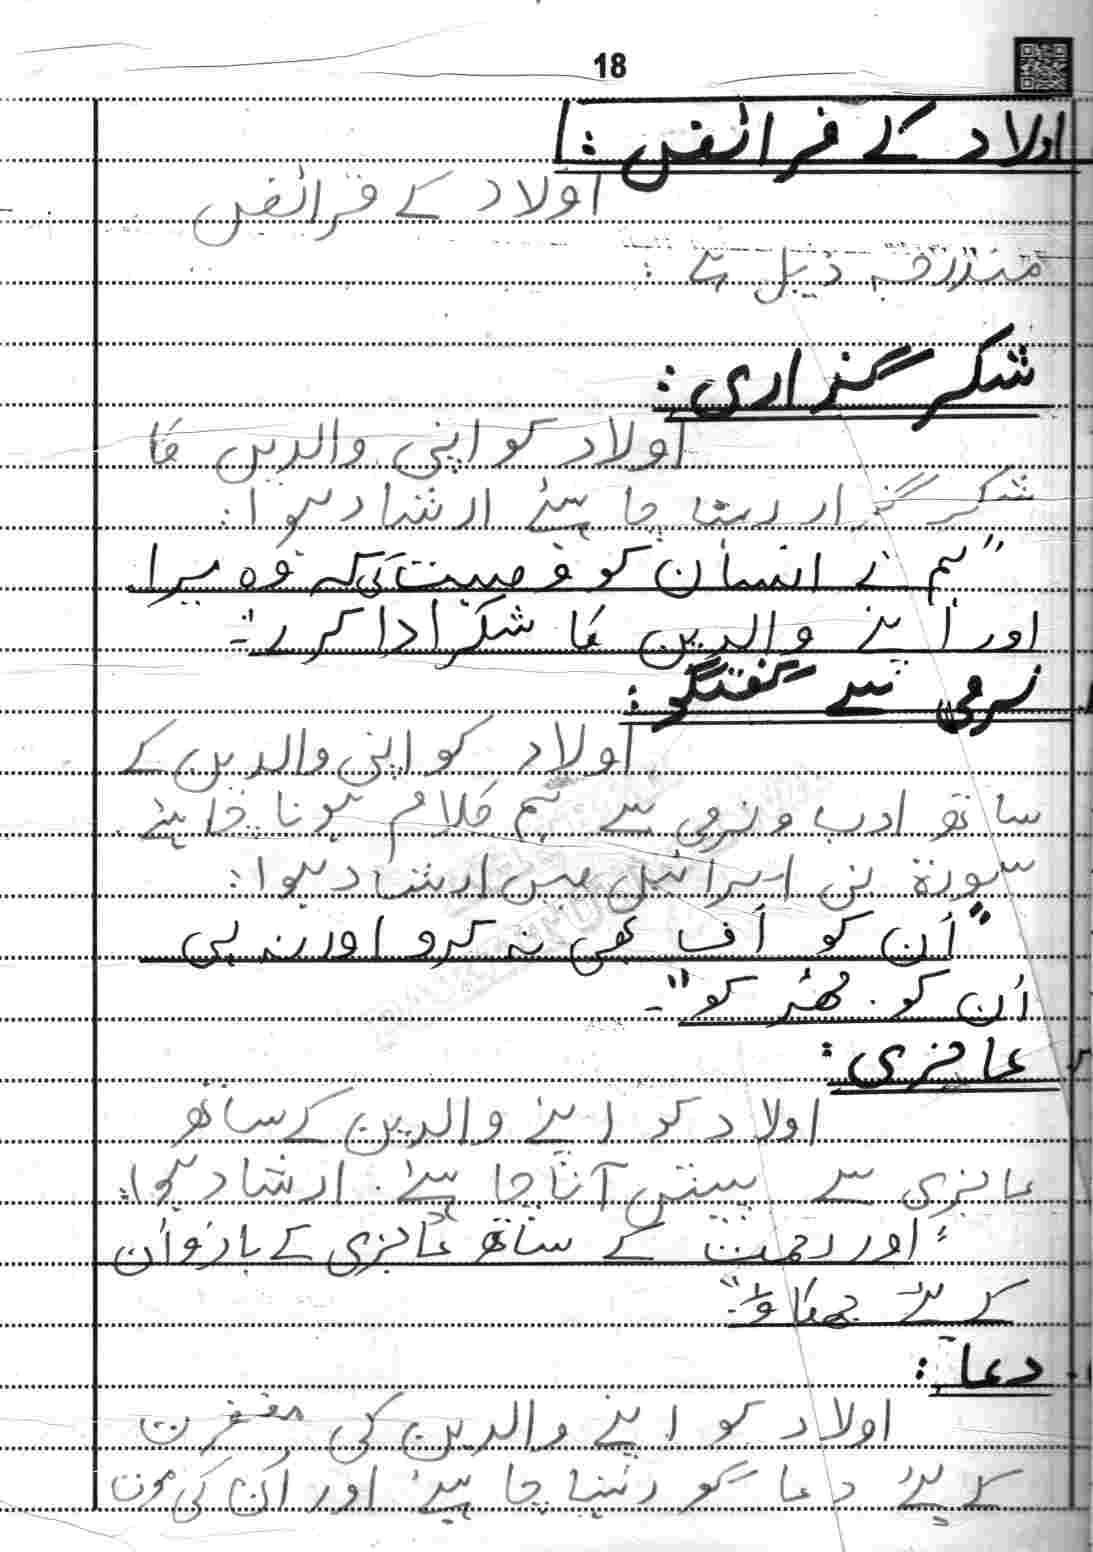 18
اولاد کے فرائض :
اولاد کے فرائض
مندرجہ ذیل ہے :
شکر گزاری :
اولاد کو اپنی والدین کا
شکر گزار رہنا چاہئے ارشاد ہوا:
"ہم نے انسان کو وصیت کی کہ وہ میرا
اور اپنے والدین کا شکر ادا کرے"۔
نرمی سے گفتگو :
اولاد کو اپنی والدین کے
ساتھ ادب و نرمی سے ہم کلام ہونا چاہئے
سورۃ بنی اسرائیل میں ارشاد ہوا:
"اُن کو اُف بھی نہ کرو اور نہ ہی
اُن کو جھڑکو"۔
عاجزی :
اولاد کو اپنے والدین کے ساتھ
عاجزی سے پیش آنا چاہئے۔ ارشاد ہوا:
"اور رحمت کے ساتھ عاجزی کے بازو اُن
کے لئے جھکاؤ"۔
دعا :
اولاد کو اپنے والدین کی مغفرت
کے لئے دعا گو رہنا چاہیئے اور اُن کی موت